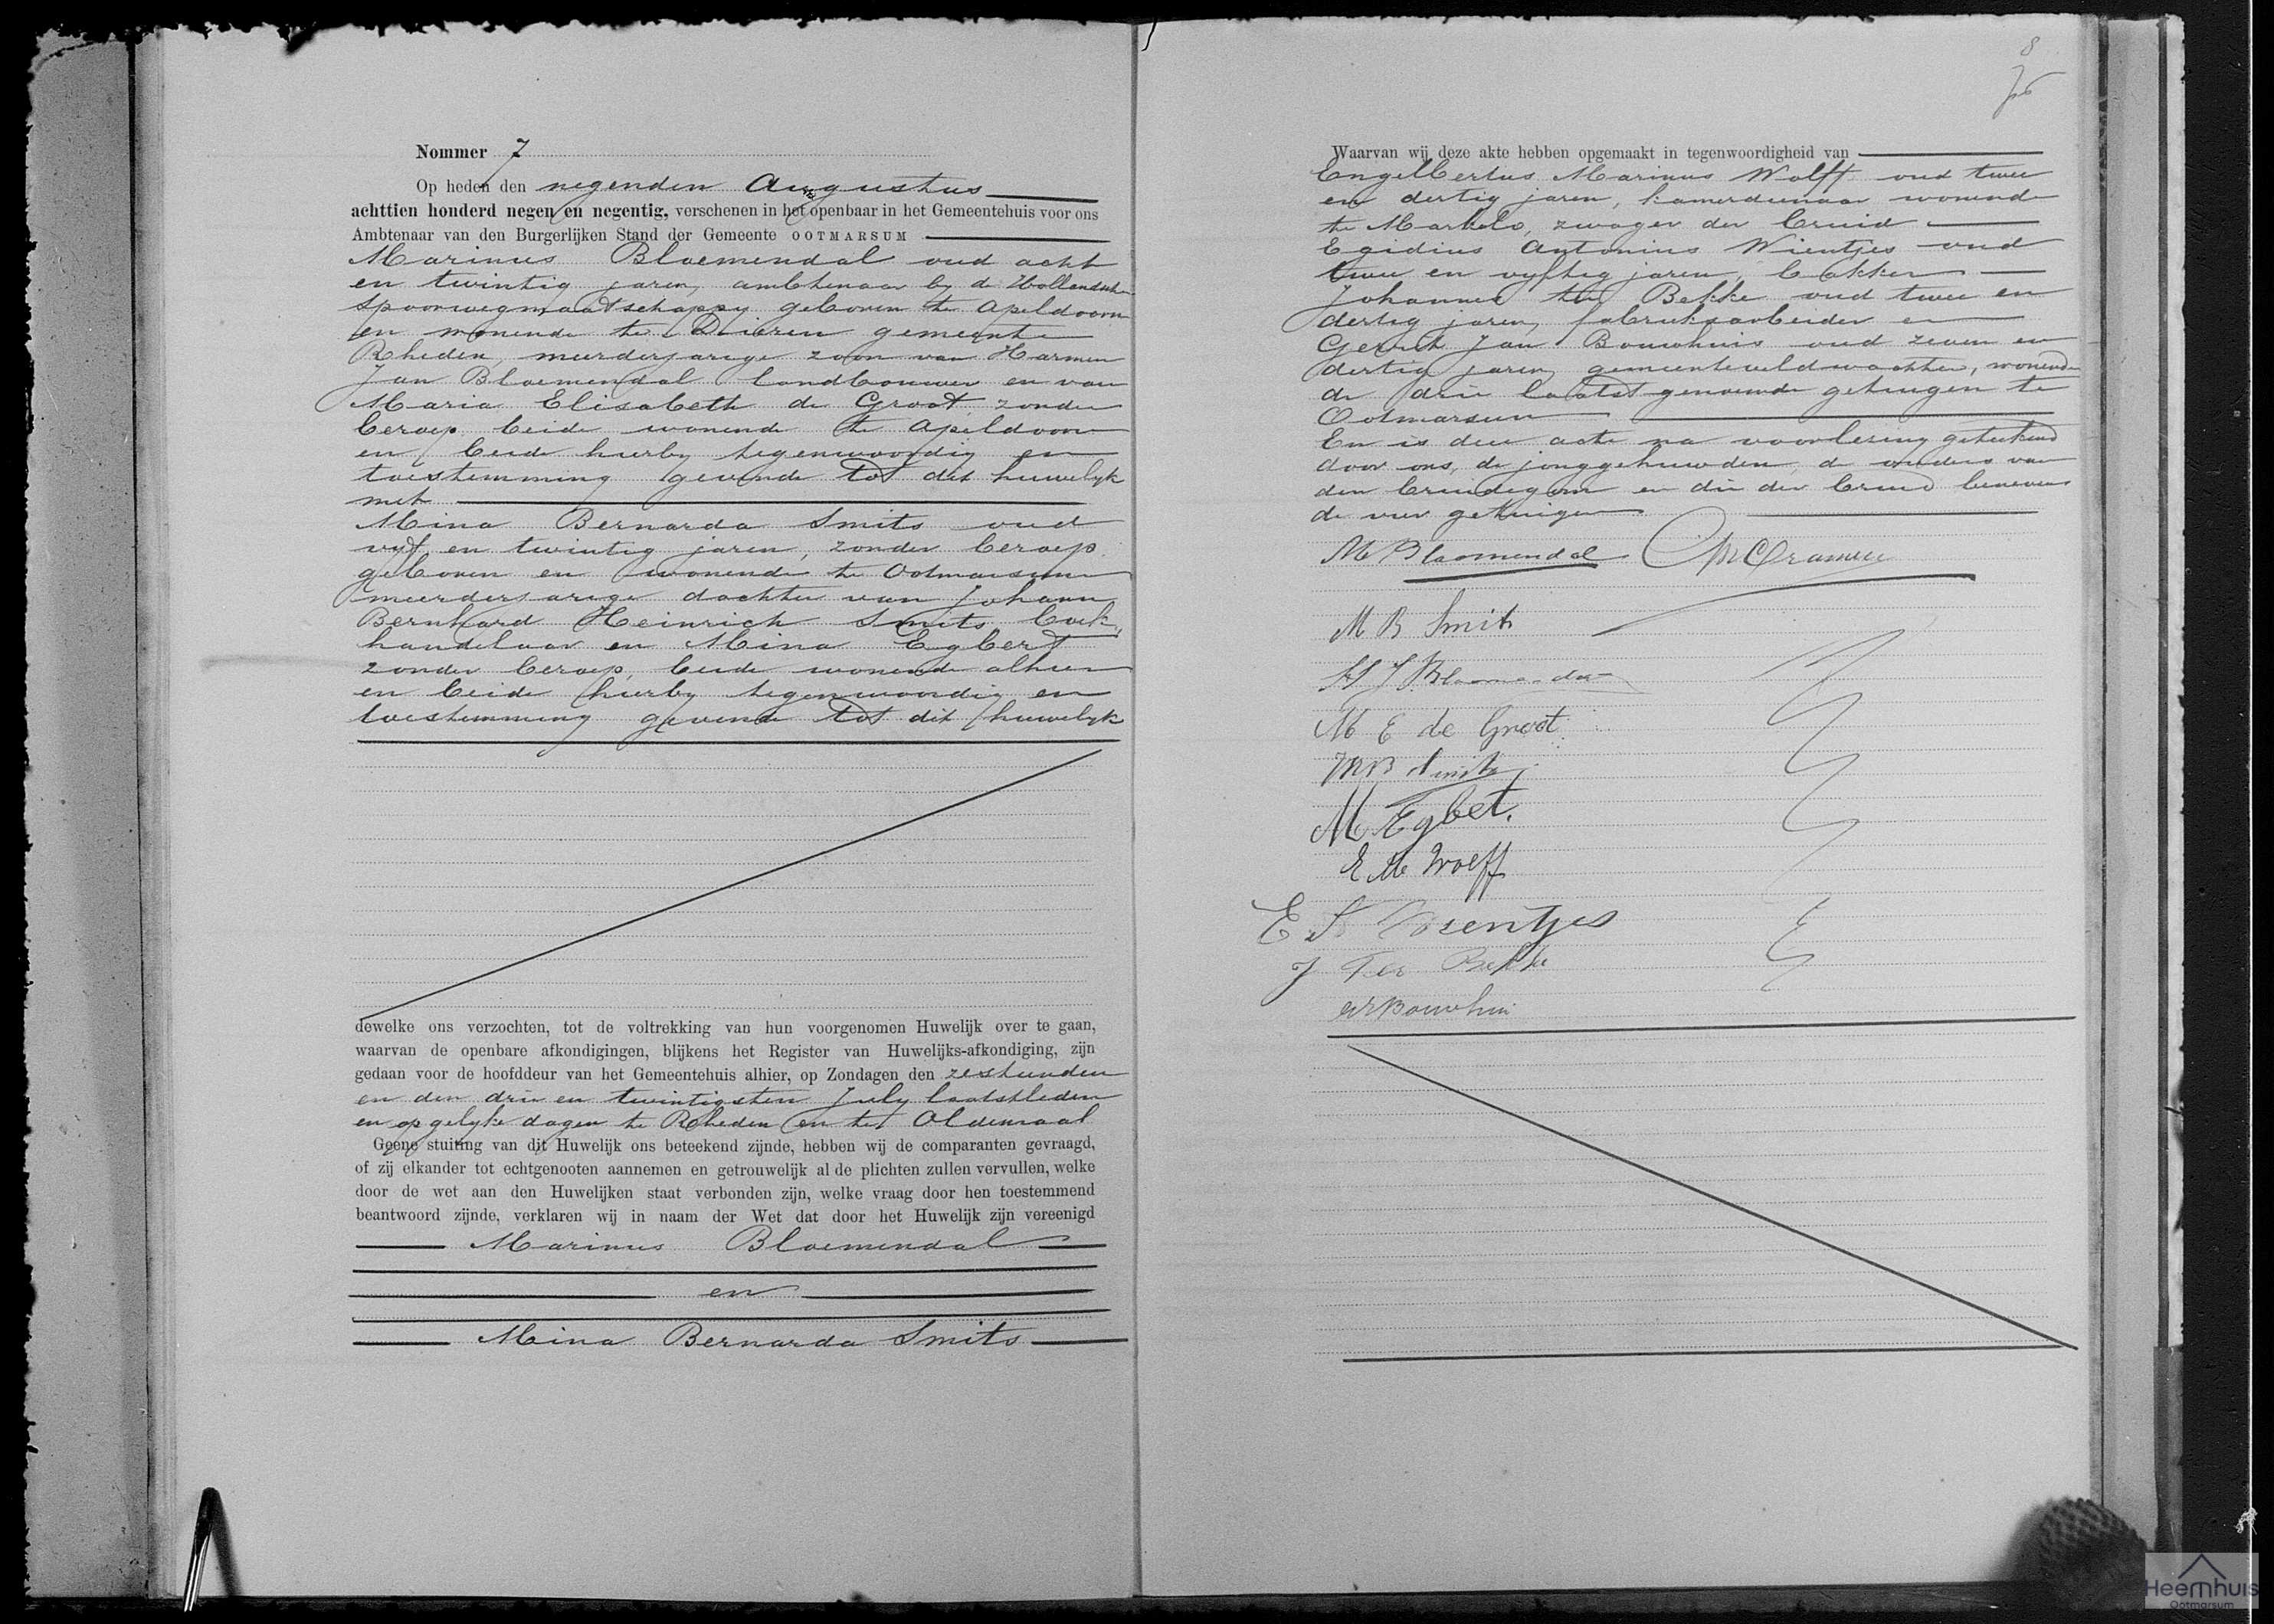 Nommer 7
Op heden den negenden Augustus
achttien honderd negen en negentig, verschenen in het openbaar in het Gemeentehuis voor ons
Ambtenaar van den Burgerlijken Stand der Gemeente OOTMARSUM
Marinus Bloemendal oud acht
en twintig jaren, ambtenaar by de Hollandsche
spoorwegmaatschappy geboren te Apeldoorn
en wonende te Dieren gemeente
Rheden, meerderjarige zoon van Harmen
Jan Bloemendal landbouwer en van
Maria Elisabeth de Groot, zonder
beroep, beide wonende te Apeldoorn
en beide hierby tegenwoordig en
toestemming gevende tot dit huwelyk
met
Mina Bernarda Smits oud
vyf en twintig jaren, zonder beroep,
geboren en wonende te Ootmarsum
meerderjarige dochter van Johann
Bernhard Heinrich Smits boek,
handelaar en Mina Egbert
zonder beroep, beide wonende alhier
en beide hierby tegenwoordig en
toestemming gevende tot dit huwelyk
dewelke ons verzochten, tot de voltrekking van hun voorgenomen Huwelijk over te gaan,
waarvan de openbare afkondigingen, blijkens het Register van Huwelijks-afkondiging, zijn
gedaan voor de hoofddeur van het Gemeentehuis alhier, op Zondagen den zestienden
en den drie en twintigsten July laatstleden
en op gelyke dagen te Rheden en te Oldenzaal
Geene stuiting van dit Huwelijk ons beteekend zijnde, hebben wij de comparanten gevraagd,
of zij elkander tot echtgenooten aannemen en getrouwelijk al de plichten zullen vervullen, welke
door de wet aan den Huwelijken staat verbonden zijn, welke vraag door hen toestemmend
beantwoord zijnde, verklaren wij in naam der Wet dat door het Huwelijk zijn vereenigd
Marinus Bloemendal
en
Mina Bernarda Smits
8
Waarvan wij deze akte hebben opgemaakt in tegenwoordigheid van
Engelbertus Marinus Wolff oud twee
en dertig jaren, kamerdienaar wonende
te Markelo, zwager der bruid
Egidius Antonius Wientjes oud
twee en vyftig jaren, bakker
Johannes ter Bekke oud twee en
dertig jaren, fabrieksarbeider en
Gerrit Jan Bouwhuis oud zeven en
dertig jaren, gemeenteveldwachter, wonende
de drie laatst genoemde getuigen te
Ootmarsum
En is deze acte na voorlezing geteekend
door ons, de jonggehuwden, de ouders van
den bruidegom en die der bruid benevens
de vier getuigen
M Bloemendal
M B Smits
H J Bloemendal
M E de Groot
Smits
M Egbet.
E M Wolff
E A Wientjes
J Ter Bekke
Bouwhuis
Heemhuis
Ootmarsum